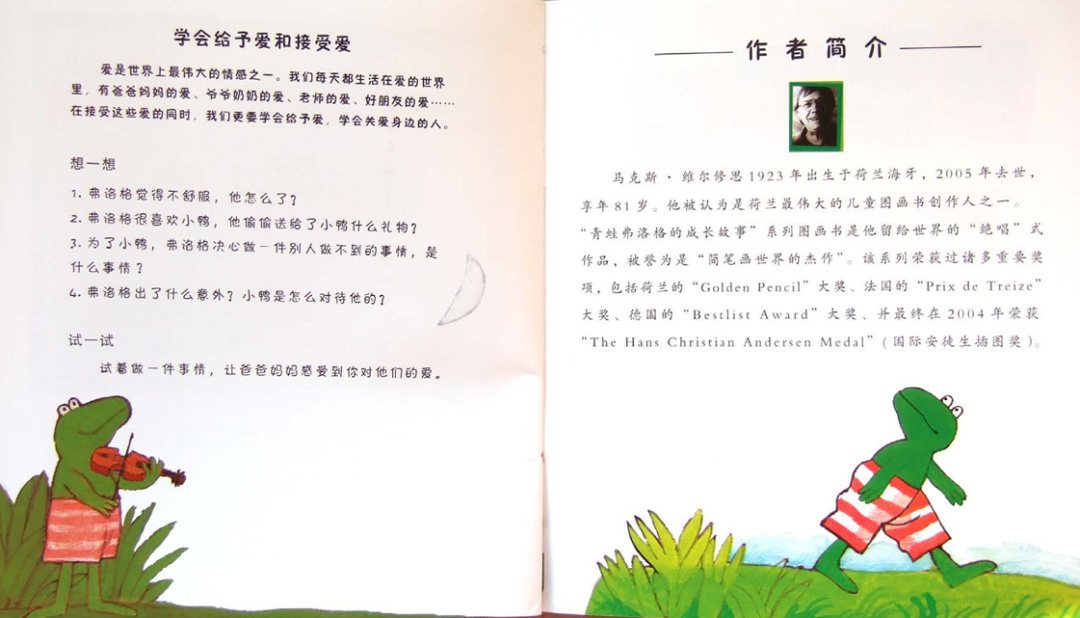 学会给予爱和接受爱
爱是世界上最伟大的情感之一。我们每天都生活在爱的世界
里，有爸爸妈妈的爱、爷爷奶奶的爱、老师的爱、好朋友的爱……
在接受这些爱的同时，我们更要学会给予爱，学会关爱身边的人。
想一想
1. 弗洛格觉得不舒服，他怎么了？
2. 弗洛格很喜欢小鸭，他偷偷送给了小鸭什么礼物？
3. 为了小鸭，弗洛格决心做一件别人做不到的事情，是
什么事情？
4. 弗洛格出了什么意外？小鸭是怎么对待他的？
试一试
试着做一件事情，让爸爸妈妈感受到你对他们的爱。
作者简介
马克斯·维尔修思1923年出生于荷兰海牙，2005年去世，
享年81岁。他被认为是荷兰最伟大的儿童图画书创作人之一。
“青蛙弗洛格的成长故事”系列图画书是他留给世界的“绝唱”式
作品，被誉为是“简笔画世界的杰作”。该系列荣获过诸多重要奖
项，包括荷兰的“Golden Pencil”大奖、法国的“Prix de Treize”
大奖、德国的“Bestlist Award”大奖、并最终在2004年荣获
“The Hans Christian Andersen Medal”(国际安徒生插图奖)。